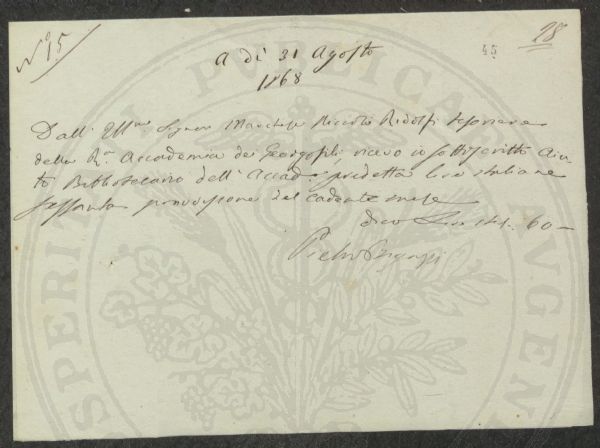 N° 15
28
45
A dì 31 Agosto
1868
Dall' Ill.mo Signor Marchese Niccolò Ridolfi Tesoriere
della R. Accademia dei Georgofili, ricevo io sottoscritto Aiu-
to Bibliotecario dell' Accad. predetta Lire italiane
sessanta provvisione del cadente mese
dico Lire it. 60 —
Pietro
PROSPERITATI PUBLICAE AUGENDAE